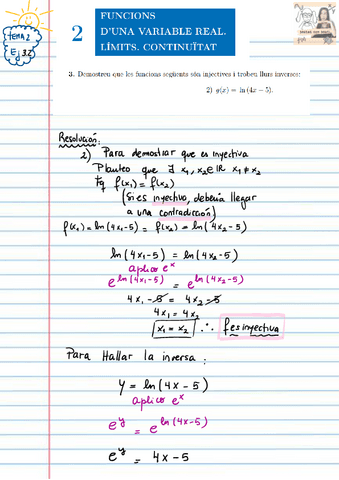 FUNCIONS
D'UNA VARIABLE REAL.
LÍMITS. CONTINUÏTAT
2
TEMA 2
Ej 3.2
3. Demostreu que les funcions següents són injectives i trobeu llurs inverses:
2) g(x) = ln (4x − 5).
Resolución:
2) Para demostrar que es inyectiva
Planteo que ∃ x₁, x₂ ∈ ℝ x₁ ≠ x₂
tq f(x₁) = f(x₂)
(Si es inyectiva, debería llegar
a una contradicción)
f(x₁) = ln(4x₁-5) = f(x₂) = ln(4x₂-5)
ln(4x₁-5) = ln(4x₂-5)
aplico eˣ
e^ln(4x₁-5) = e^ln(4x₂-5)
4x₁ - 5 = 4x₂ - 5
4x₁ = 4x₂
x₁ = x₂ ∴ f es inyectiva
Para Hallar la inversa:
y = ln(4x-5)
aplico eˣ
e^y = e^ln(4x-5)
e^y = 4x-5